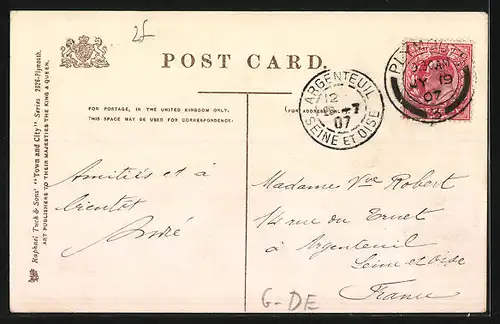 2f
POST CARD.
Raphael Tuck & Sons' "Town and City" Series 2026-Plymouth.
ART PUBLISHERS TO THEIR MAJESTIES THE KING & QUEEN.
FOR POSTAGE, IN THE UNITED KINGDOM ONLY,
THIS SPACE MAY BE USED FOR CORRESPONDENCE.
ARGENTEUIL
12
-7
07
SEINE ET OISE
PLYMOUTH
19
07
Amitiés et à
bientôt
André
Madame Vve Robert
14 rue du
à Argenteuil
Seine et Oise
France
G-DE